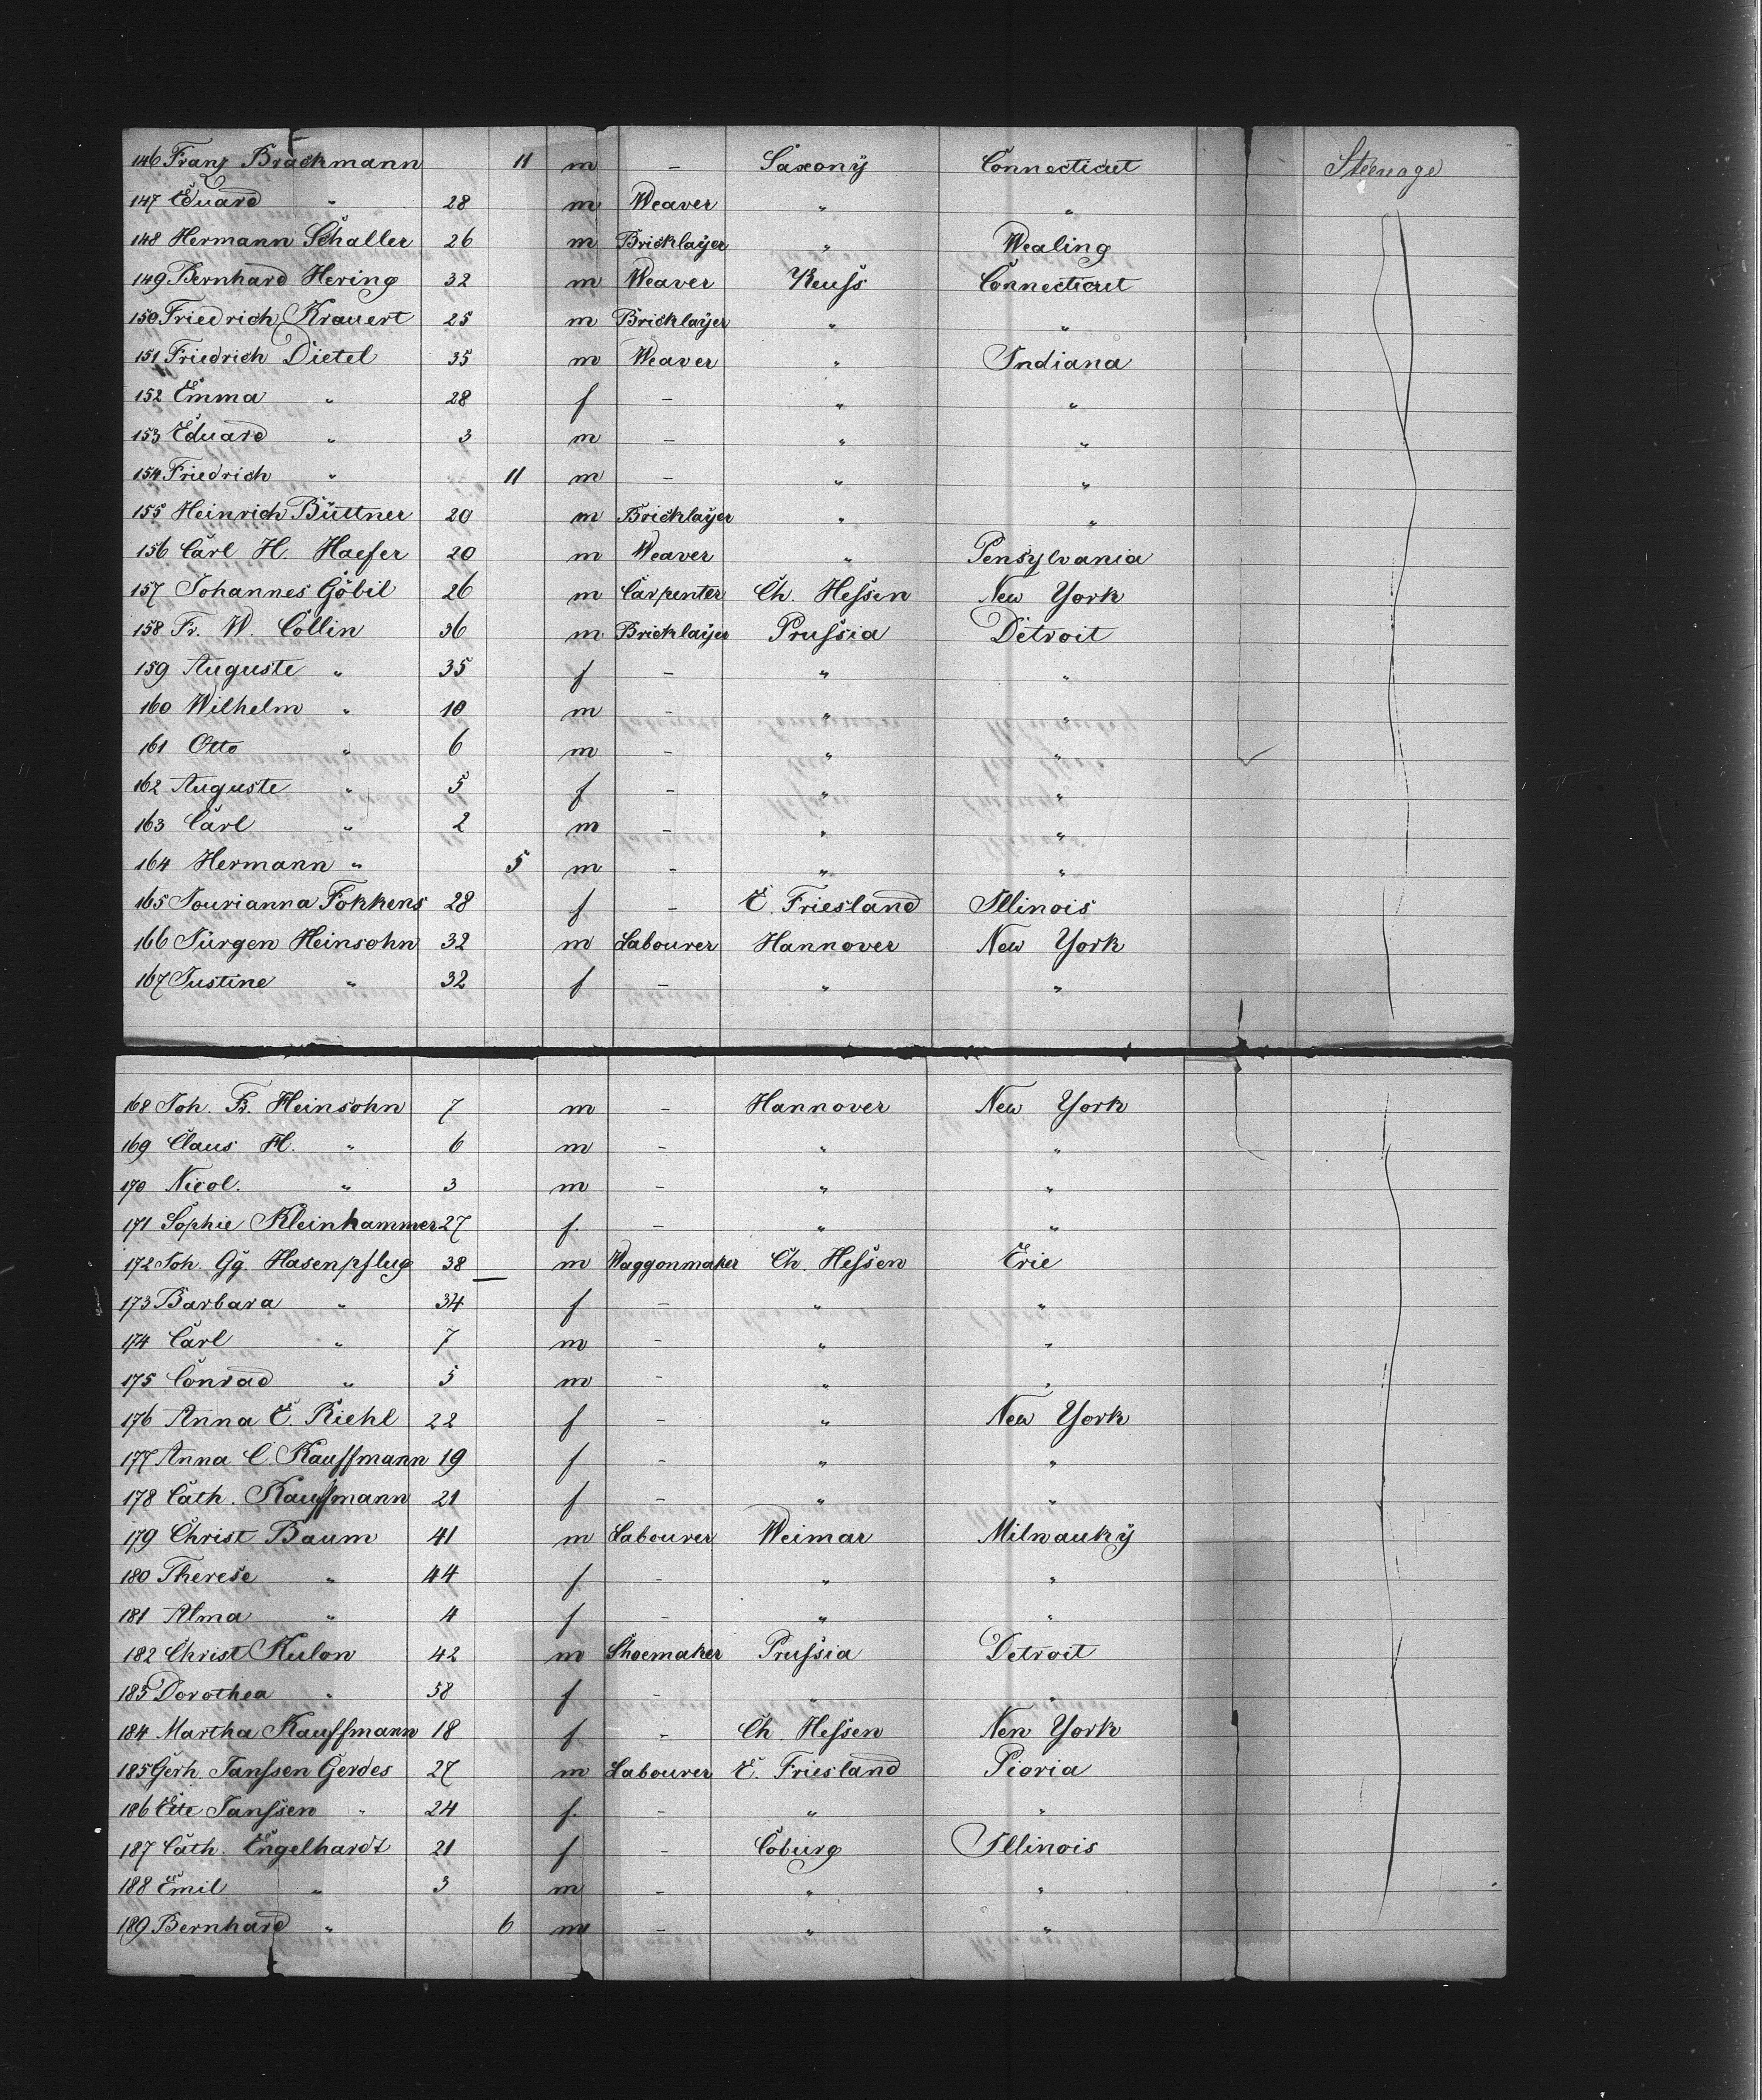 146 Franz Brackmann 11 m - Saxony Connecticut Steerage
147 Eduard " 28 m Weaver " "
148 Hermann Schaller 26 m Bricklayer " Wealing
149 Bernhard Hering 32 m Weaver Reuss Connecticut
150 Friedrich Krauert 25 m Bricklayer " "
151 Friedrich Dietel 35 m Weaver " Indiana
152 Emma " 28 f - " "
153 Eduard " 3 m - " "
154 Friedrich " 11 m - " "
155 Heinrich Büttner 20 m Bricklayer " "
156 Carl H. Haefer 20 m Weaver " Pensylvania
157 Johannes Göbil 26 m Carpenter Ch. Hessen New York
158 Fr. W. Collin 36 m Bricklayer Prussia Detroit
159 Auguste " 35 f - " "
160 Wilhelm " 10 m - " "
161 Otto " 6 m - " "
162 Auguste " 5 f - " "
163 Carl " 2 m - " "
164 Hermann " 5 m - " "
165 Jourianna Fokkens 28 f - E. Friesland Illinois
166 Jürgen Heinsohn 32 m Labourer Hannover New York
167 Justine " 32 f - " "
168 Joh. Fr. Heinsohn 7 m - Hannover New York
169 Claus H. " 6 m - " "
170 Nicol. " 3 m - " "
171 Sophie Kleinhammer 27 f. - " "
172 Joh. Gg. Hasenpflug 38 m Waggonmaker Ch. Hessen Erie
173 Barbara " 34 f - " "
174 Carl " 7 m - " "
175 Conrad " 5 m - " "
176 Anna E. Riehl 22 f - " New York
177 Anna C. Kauffmann 19 f - " "
178 Cath. Kauffmann 21 f - " "
179 Christ Baum 41 m Labourer Weimar Milwauky
180 Therese " 44 f - " "
181 Alma " 4 f - " "
182 Christ Kulon 42 m Shoemaker Prussia Detroit
183 Dorothea " 58 f - " "
184 Martha Kauffmann 18 f - Ch. Hessen New York
185 Gerh. Janssen Gerdes 27 m Labourer E. Friesland Pioria
186 Ette Janssen " 24 f. - " "
187 Cath. Engelhardt 21 f - Coburg Illinois
188 Emil " 3 m - " "
189 Bernhard " 6 m - " "